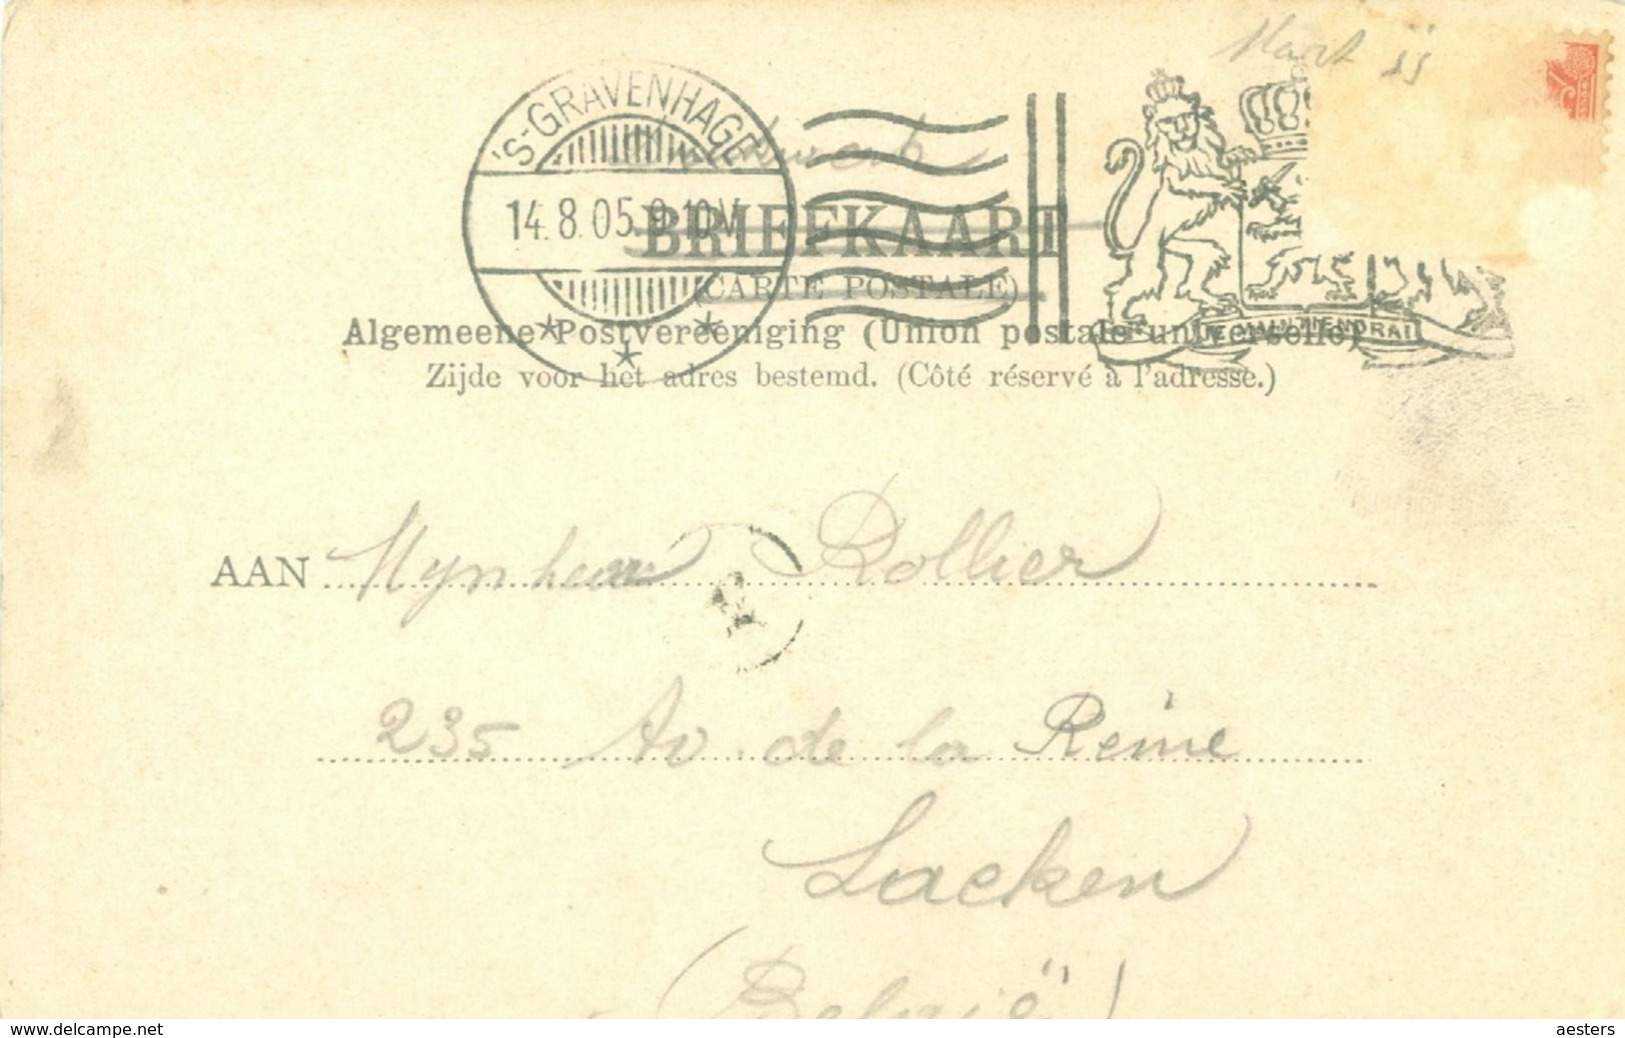 'S-GRAVENHAGE
14.8.05.9-10V
BRIEFKAART
(CARTE POSTALE)
Algemeene Postvereeniging (Union postale universelle)
Zijde voor het adres bestemd. (Côté réservé à l'adresse.)
JE MAINTIENDRAI
AAN Mynheer Rollier
235 Av. de la Reine
Laeken
(België)
www.delcampe.net
aesters